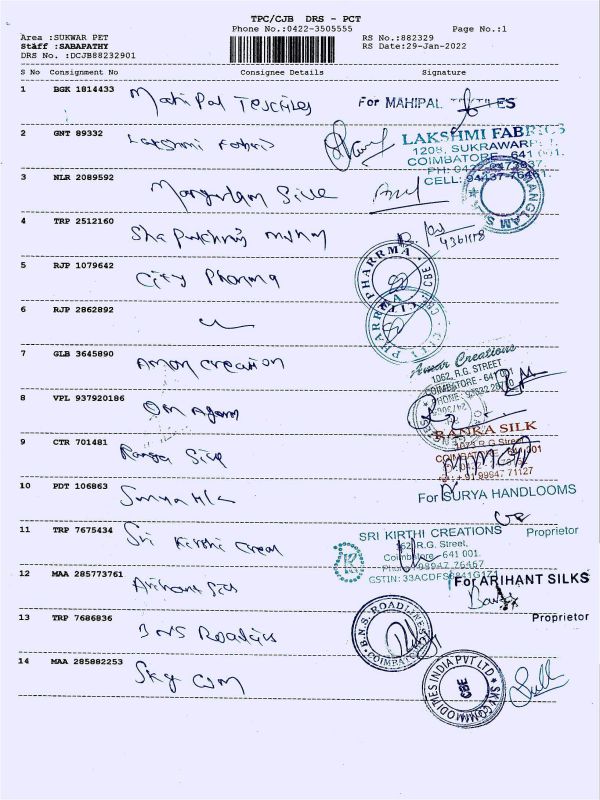 TPC/CJB DRS - PCT
Phone No.:0422-3505555 Page No.:1
Area :SUKWAR PET RS No.:882329
Staff :SABAPATHY RS Date:29-Jan-2022
DRS No. :DCJB88232901
S No Consignment No Consignee Details Signature
1 BGK 1814433 Mahipal Textiles For MAHIPAL TEXTILES
2 GNT 89332 Lakshmi Fabrics LAKSHMI FABRICS
1208, SUKRAWARPET,
COIMBATORE - 641 001.
PH: 0422-
CELL: 94437-76461
3 NLR 2089592 Mangalam Silk
4 TRP 2512160
5 RJP 1079642 City Pharma CITY PHARRMA CBE
6 RJP 2862892 CITY PHARRMA CBE
7 GLB 3645890 Aman Creation Amar Creations
1062, R.G. STREET
COIMBATORE - 641 001
PHONE:
8 VPL 937920186 Om
9 CTR 701481 Ranga Silk RANKA SILK
1073 R.G Street
COIMBATORE 641 001
+91 99947 71127
10 PDT 106863 Surya H/L For SURYA HANDLOOMS
Proprietor
11 TRP 7675434 Sri Kirthi Creat SRI KIRTHI CREATIONS
R.G. Street,
Coimbatore - 641 001.
Phone: 98947 76467
12 MAA 285773761 Arihant Silk For ARIHANT SILKS
Proprietor
13 TRP 7686836 BNS Roadlines B.N.S. ROADLINES COIMBATORE
14 MAA 285882253 Sky Com SKY COMMODITIES INDIA PVT LTD CBE